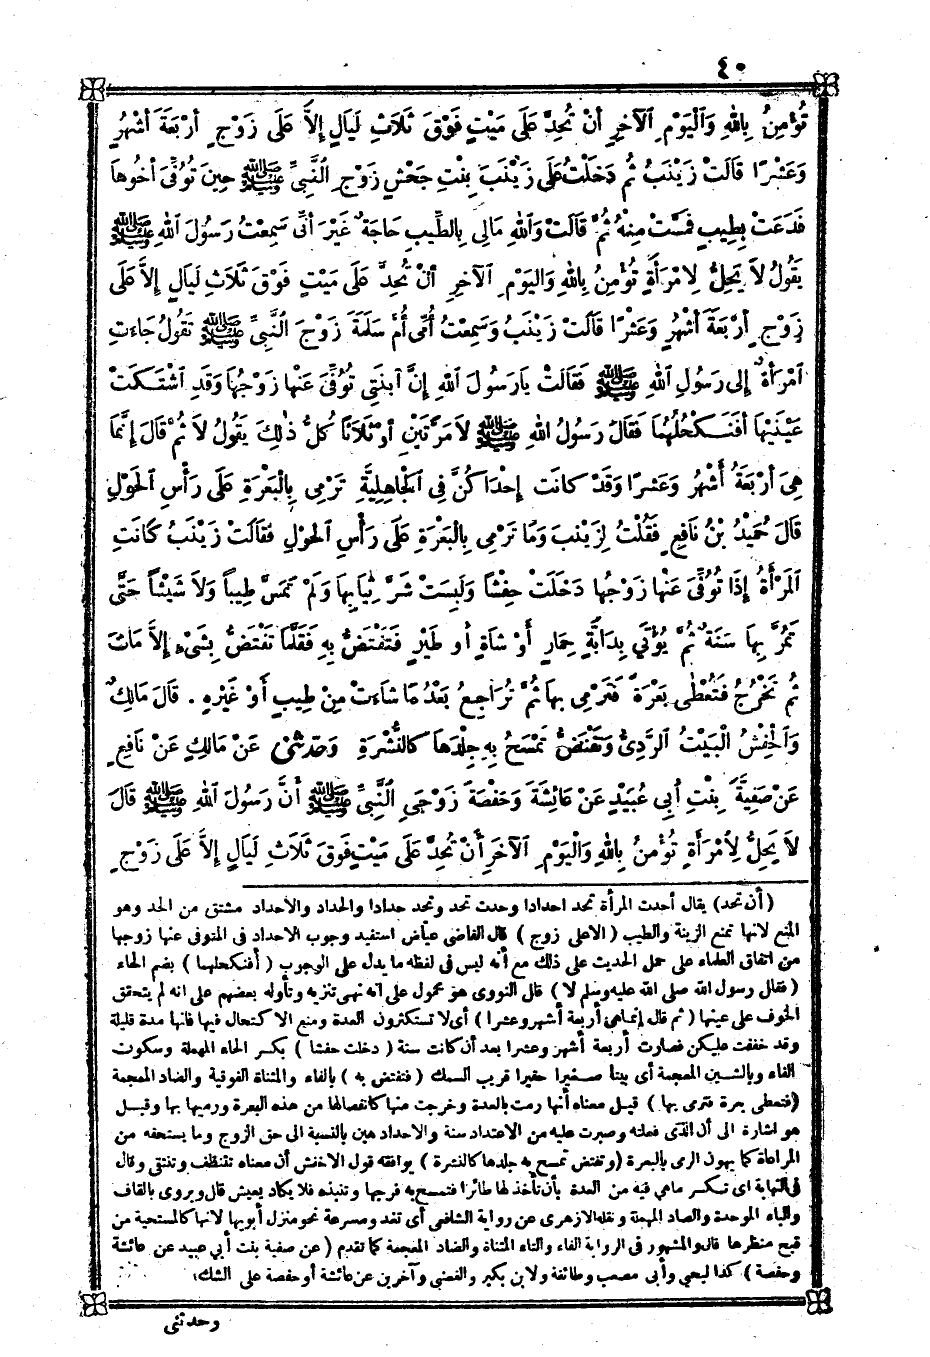 ٤٠
تُؤْمِنُ بِاللهِ وَالْيَوْمِ الْآخِرِ أَنْ تُحِدَّ عَلَى مَيِّتٍ فَوْقَ ثَلَاثِ لَيَالٍ إِلاَّ عَلَى زَوْجٍ أَرْبَعَةَ أَشْهُرٍ
وَعَشْرًا قَالَتْ زَيْنَبُ ثُمَّ دَخَلْتُ عَلَى زَيْنَبَ بِنْتِ جَحْشٍ زَوْجِ النَّبِيِّ ﷺ حِينَ تُوُفِّىَ أَخُوهَا
فَدَعَتْ بِطِيبٍ فَمَسَّتْ مِنْهُ ثُمَّ قَالَتْ وَاللهِ مَالِى بِالطِّيبِ حَاجَةٌ غَيْرَ أَنِّى سَمِعْتُ رَسُولَ اللهِ ﷺ
يَقُولُ لاَ يَحِلُّ لِامْرَأَةٍ تُؤْمِنُ بِاللهِ وَالْيَوْمِ الْآخِرِ أَنْ تُحِدَّ عَلَى مَيِّتٍ فَوْقَ ثَلَاثِ لَيَالٍ إِلاَّ عَلَى
زَوْجٍ أَرْبَعَةَ أَشْهُرٍ وَعَشْرًا قَالَتْ زَيْنَبُ وَسَمِعْتُ أُمِّى أُمَّ سَلَمَةَ زَوْجَ النَّبِيِّ ﷺ تَقُولُ جَاءَتِ
امْرَأَةٌ إِلَى رَسُولِ اللهِ ﷺ فَقَالَتْ يَارَسُولَ اللهِ إِنَّ ابْنَتِى تُوُفِّىَ عَنْهَا زَوْجُهَا وَقَدِ اشْتَكَتْ
عَيْنَيْهَا أَفَنَكْحُلُهُمَا فَقَالَ رَسُولُ اللهِ ﷺ لاَ مَرَّتَيْنِ أَوْ ثَلَاثًا كُلُّ ذٰلِكَ يَقُولُ لاَ ثُمَّ قَالَ إِنَّمَا
هِىَ أَرْبَعَةُ أَشْهُرٍ وَعَشْرًا وَقَدْ كَانَتْ إِحْدَاكُنَّ فِى الْجَاهِلِيَّةِ تَرْمِى بِالْبَعْرَةِ عَلَى رَأْسِ الْحَوْلِ
قَالَ حُمَيْدُ بْنُ نَافِعٍ فَقُلْتُ لِزَيْنَبَ وَمَا تَرْمِى بِالْبَعْرَةِ عَلَى رَأْسِ الْحَوْلِ فَقَالَتْ زَيْنَبُ كَانَتِ
الْمَرْأَةُ إِذَا تُوُفِّىَ عَنْهَا زَوْجُهَا دَخَلَتْ حِفْشًا وَلَبِسَتْ شَرَّ ثِيَابِهَا وَلَمْ تَمَسَّ طِيبًا وَلاَ شَيْئًا حَتَّى
تَمُرَّ بِهَا سَنَةٌ ثُمَّ يُؤْتَى بِدَابَّةٍ حِمَارٍ أَوْ شَاةٍ أَوْ طَيْرٍ فَتَفْتَضُّ بِهِ فَقَلَّمَا تَفْتَضُّ بِشَىْءٍ إِلاَّ مَاتَ
ثُمَّ تَخْرُجُ فَتُعْطَى بَعْرَةً فَتَرْمِى بِهَا ثُمَّ تُرَاجِعُ بَعْدُ مَا شَاءَتْ مِنْ طِيبٍ أَوْ غَيْرِهِ . قَالَ مَالِكٌ
وَالْحِفْشُ الْبَيْتُ الرَّدِىُّ وَتَفْتَضُّ تَمْسَحُ بِهِ جِلْدَهَا كَالنُّشْرَةِ وَحَدَّثَنِى عَنْ مَالِكٍ عَنْ نَافِعٍ
عَنْ صَفِيَّةَ بِنْتِ أَبِى عُبَيْدٍ عَنْ عَائِشَةَ وَحَفْصَةَ زَوْجَىِ النَّبِيِّ ﷺ أَنَّ رَسُولَ اللهِ ﷺ قَالَ
لاَ يَحِلُّ لِامْرَأَةٍ تُؤْمِنُ بِاللهِ وَالْيَوْمِ الْآخِرِ أَنْ تُحِدَّ عَلَى مَيِّتٍ فَوْقَ ثَلَاثِ لَيَالٍ إِلاَّ عَلَى زَوْجٍ
(أن تحد) يقال أحدت المرأة تحد احدادا وحدت تحد وتحد حدادا والحداد والاحداد مشتق من الحد وهو
المنع لانها تمنع الزينة والطيب (الاعلى زوج) قال القاضى عياض استفيد وجوب الاحداد فى المتوفى عنها زوجها
من اتفاق العلماء على حمل الحديث على ذلك مع أنه ليس فى لفظه ما يدل على الوجوب (أفنكحلهما) بضم الحاء
(فقال رسول الله صلى الله عليه وسلم لا) قال النووى هو محمول على أنه نهى تنزيه وتأوله بعضهم على انه لم يتحقق
الخوف على عينها (ثم قال إنماهى أربعة أشهر وعشرا) أى لا تستكثرون العدة ومنع الاكتحال فيها فانها مدة قليلة
وقد خففت عليكن فصارت أربعة أشهر وعشرا بعد أن كانت سنة (دخلت حفشا) بكسر الحاء المهملة وسكون
الفاء وبالشين المعجمة أى بيتا صغيرا حقيرا قريب السمك (فتفتض به) بالفاء والمثناة الفوقية والضاد المعجمة
(فتعطى بعرة فترى بها) قيل معناه أنها رمت بالعدة وخرجت منها كانفصالها من هذه البعرة ورميها بها وقيل
هو اشارة الى أن الذى فعلته وصبرت عليه من الاعتداد سنة والاحداد هين بالنسبة الى حق الزوج وما يستحقه من
المراعاة كما يهون الرمى بالبعرة (وتفتض تمسح به جلدها كالنشرة) يوافقه قول الاخفش أن معناه تتنظف وتنتقى وقال
فى النهاية اى تكسر ماهى فيه من العدة بأن تأخذ لها طائرا فتمسح به فرجها وتنبذه فلا يكاد يعيش قال ويروى بالقاف
والباء الموحدة والصاد المهملة ونقله الازهرى عن رواية الشافعى أى تغدو مسرعة نحو منزل أبويها لانها كالمستحية من
قبح منظرها قال والمشهور فى الرواية الفاء والتاء المثناة والضاد المعجمة كما تقدم (عن صفية بنت أبى عبيد عن عائشة
وحفصة) كذا ليحيى وأبى مصعب وطائفة ولابن بكير والقعنبى وآخرين عن عائشة أو حفصة على الشك؛
وحدثنى